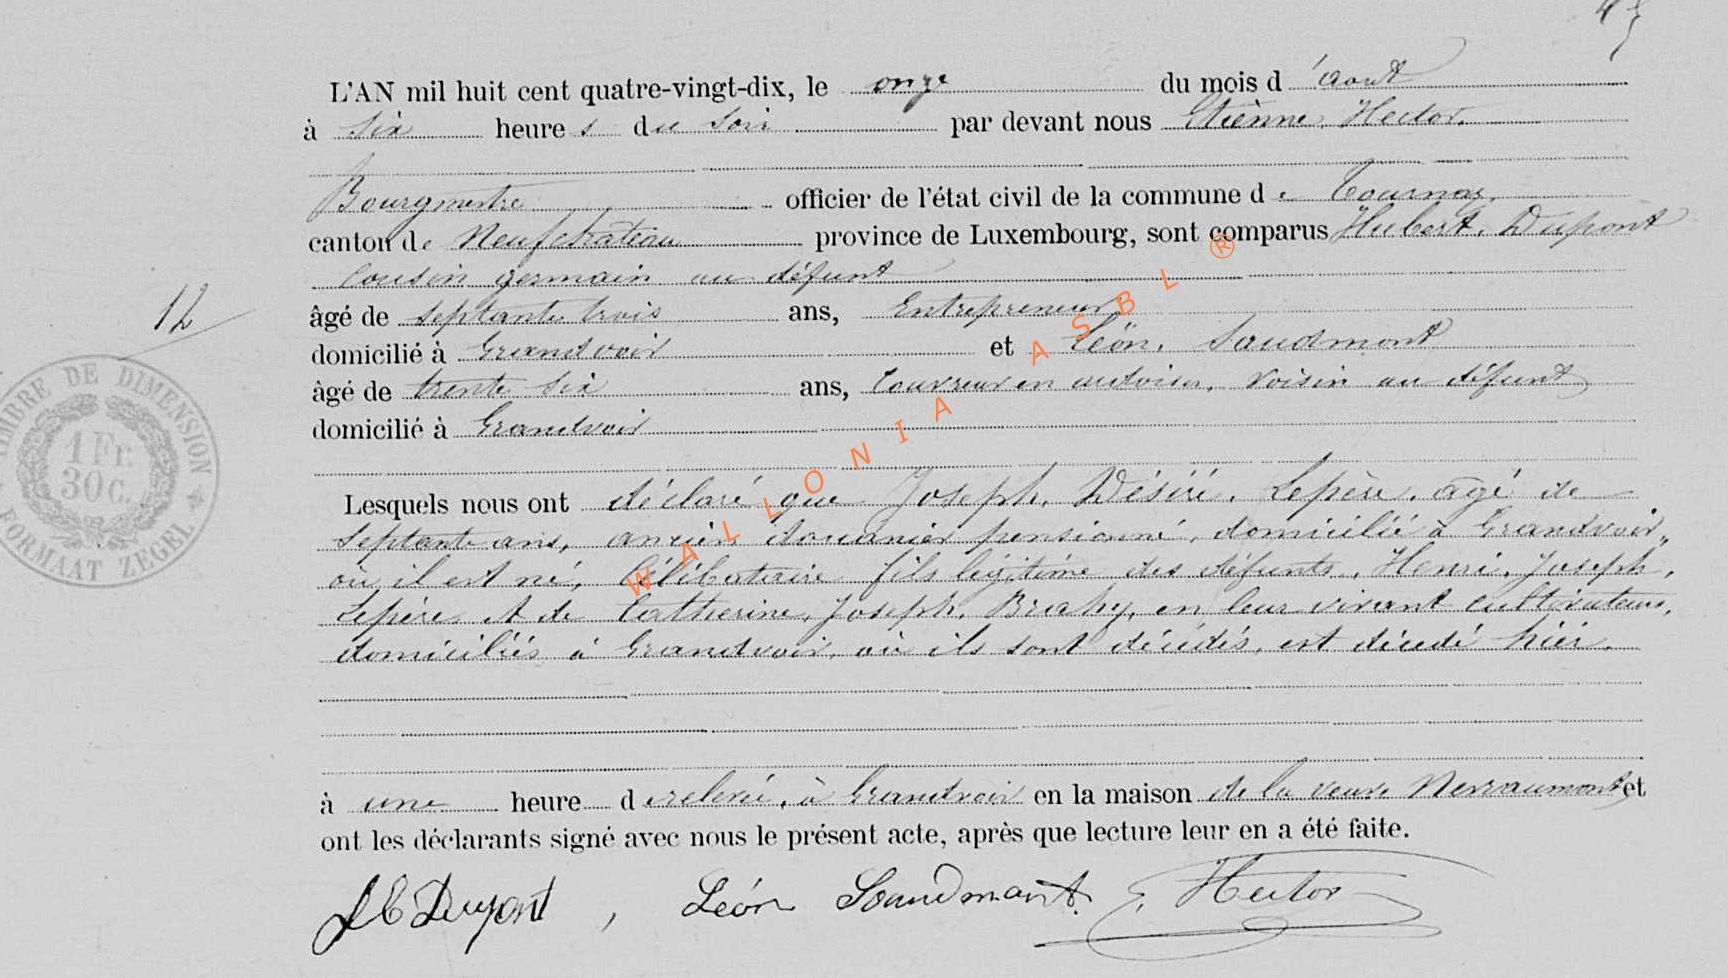 L'AN mil huit cent quatre-vingt-dix, le onze du mois d'août
à six heures du soir par devant nous Etienne, Hector,
Bourgmestre officier de l'état civil de la commune de Tournay,
canton de Neufchâteau province de Luxembourg, sont comparus Hubert, Dupont
cousin germain au défunt
12
âgé de septante trois ans, Entrepreneur
domicilié à Grandvoir et Léon, Saudmont
âgé de trente six ans, Couvreur en ardoises, voisin au défunt
domicilié à Grandvoir
TIMBRE DE DIMENSION
1 Fr.
30 C.
FORMAAT ZEGEL
Lesquels nous ont déclaré que Joseph, Désiré, Lepère, agé de
septante ans, ancien douanier pensionné, domicilié à Grandvoir,
où il est né, Célibataire fils légitime des défunts, Henri, Joseph,
Lepère et de Catherine, Joseph, Brahy, en leur vivant cultivateurs,
domiciliés à Grandvoir, où ils sont décédés, est décédé hier,
à une heure de relevé, à Grandvoir en la maison de la veuve et
ont les déclarants signé avec nous le présent acte, après que lecture leur en a été faite.
Dupont, Léon Saudmont. E. Hector
WALLONIA ASBL ®